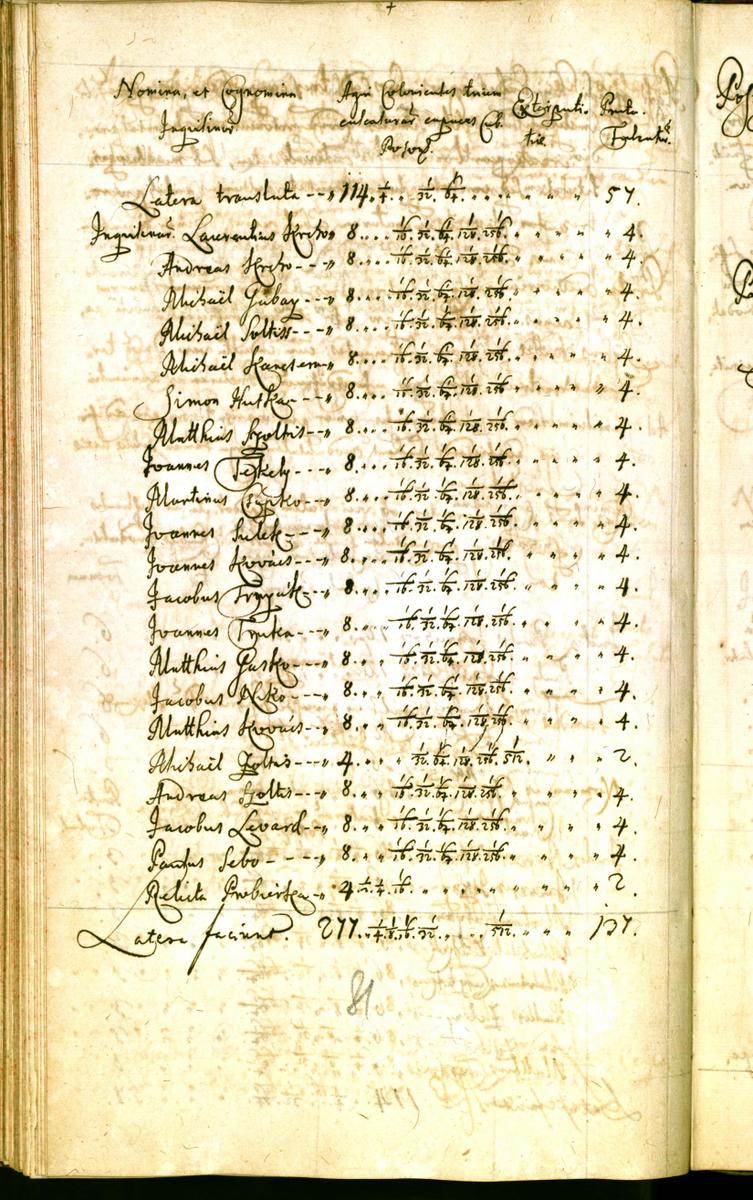 Nomina, et Cognomina
Inquilinor.
Agri Colonicales trium
calcaturar. capaces Cub.
Poson.
Extirpati-
tiae.
Prata.
Falcator.
Latera translata --- 114. 1/4 . . 1/32 . 1/64 . . . . . . 57.
Inquilinor. Laurentius Kreho 8 . . . . 1/16 . 1/32 . 1/64 . 1/128 . 1/256 . . . . 4.
Andreas Kreho --- 8 . . . . 1/16 . 1/32 . 1/64 . 1/128 . 1/256 . . . . 4.
Michaël Gabay --- 8 . . . . 1/16 . 1/32 . 1/64 . 1/128 . 1/256 . . . . 4.
Michaël Soltiss --- 8 . . . . 1/16 . 1/32 . 1/64 . 1/128 . 1/256 . . . . 4.
Michaël 8 . . . . 1/16 . 1/32 . 1/64 . 1/128 . 1/256 . . . . 4.
Simon Hutka --- 8 . . . . 1/16 . 1/32 . 1/64 . 1/128 . 1/256 . . . . 4.
Matthias Szoltis --- 8 . . . . 1/16 . 1/32 . 1/64 . 1/128 . 1/256 . . . . 4.
Joannes Tekely --- 8 . . . . 1/16 . 1/32 . 1/64 . 1/128 . 1/256 . . . . 4.
Martinus --- 8 . . . . 1/16 . 1/32 . 1/64 . 1/128 . 1/256 . . . . 4.
Joannes Sulek --- 8 . . . . 1/16 . 1/32 . 1/64 . 1/128 . 1/256 . . . . 4.
Joannes Kovács --- 8 . . . . 1/16 . 1/32 . 1/64 . 1/128 . 1/256 . . . . 4.
Jacobus --- 8 . . . . 1/16 . 1/32 . 1/64 . 1/128 . 1/256 . . . . 4.
Joannes --- 8 . . . . 1/16 . 1/32 . 1/64 . 1/128 . 1/256 . . . . 4.
Matthias Gasko --- 8 . . . 1/16 . 1/32 . 1/64 . 1/128 . 1/256 . . . . 4.
Jacobus --- 8 . . . 1/16 . 1/32 . 1/64 . 1/128 . 1/256 . . . . 4.
Matthias Kovács --- 8 . . . 1/16 . 1/32 . 1/64 . 1/128 . 1/256 . . . . 4.
Michaël Zoltis --- 4 . . . . 1/32 . 1/64 . 1/128 . 1/256 . 1/512 . . . . 2.
Andreas Szoltis --- 8 . . . 1/16 . 1/32 . 1/64 . 1/128 . 1/256 . . . . 4.
Jacobus Levard --- 8 . . . 1/16 . 1/32 . 1/64 . 1/128 . 1/256 . . . . 4.
Paulus Sebo --- 8 . . . 1/16 . 1/32 . 1/64 . 1/128 . 1/256 . . . . 4.
Relicta 4 1/2 . 1/4 . 1/16 . . . . . . . . 2.
Latera faciunt. 277. 1/4 . 1/8 . 1/16 . 1/32 . . . . 1/512 . . . . 137.
81